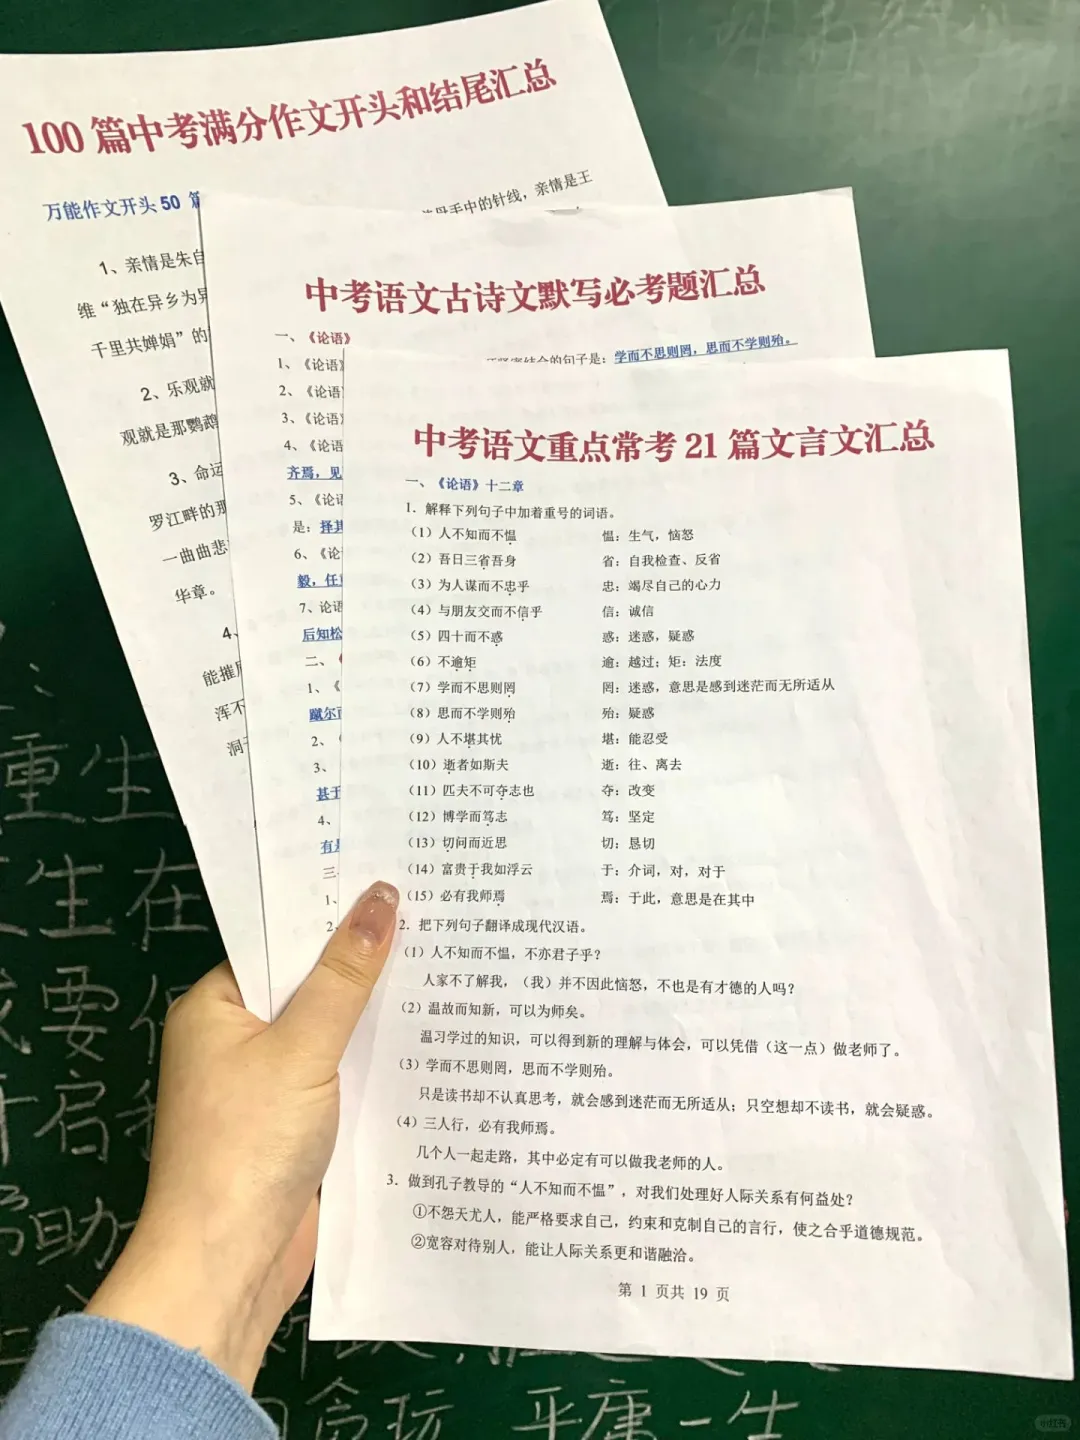 100 篇中考满分作文开头和结尾汇总
万能作文开头 50 篇
母手中的针线，亲情是王
1、亲情是朱自
维“独在异乡为异
千里共婵娟”的
2、乐观就
观就是那鹦鹉
3、命运
罗江畔的那
一曲曲悲
华章。
4、
能摧眉
浑不
洞
中考语文古诗文默写必考题汇总
一、《论语》
1、《论语》
结合的句子是：学而不思则罔，思而不学则殆。
2、《论语》
3、《论语》
4、《论语
齐焉，见
5、《论语
是：择其
6、《论
毅，任重
7、论语
后知松
二、《
1、《
蹴尔而
2、
3、
甚于
4、
有是
三
1、
2、
中考语文重点常考 21 篇文言文汇总
一、《论语》十二章
1．解释下列句子中加着重号的词语。
（1）人不知而不愠 愠：生气，恼怒
（2）吾日三省吾身 省：自我检查、反省
（3）为人谋而不忠乎 忠：竭尽自己的心力
（4）与朋友交而不信乎 信：诚信
（5）四十而不惑 惑：迷惑，疑惑
（6）不逾矩 逾：越过；矩：法度
（7）学而不思则罔 罔：迷惑，意思是感到迷茫而无所适从
（8）思而不学则殆 殆：疑惑
（9）人不堪其忧 堪：能忍受
（10）逝者如斯夫 逝：往、离去
（11）匹夫不可夺志也 夺：改变
（12）博学而笃志 笃：坚定
（13）切问而近思 切：恳切
（14）富贵于我如浮云 于：介词，对，对于
（15）必有我师焉 焉：于此，意思是在其中
2．把下列句子翻译成现代汉语。
（1）人不知而不愠，不亦君子乎？
人家不了解我，（我）并不因此恼怒，不也是有才德的人吗？
（2）温故而知新，可以为师矣。
温习学过的知识，可以得到新的理解与体会，可以凭借（这一点）做老师了。
（3）学而不思则罔，思而不学则殆。
只是读书却不认真思考，就会感到迷茫而无所适从；只空想却不读书，就会疑惑。
（4）三人行，必有我师焉。
几个人一起走路，其中必定有可以做我老师的人。
3．做到孔子教导的“人不知而不愠”，对我们处理好人际关系有何益处？
①不怨天尤人，能严格要求自己，约束和克制自己的言行，使之合乎道德规范。
②宽容对待别人，能让人际关系更和谐融洽。
第 1 页共 19 页
重生
生在
要
启
助
贪玩 平庸一生
小红书